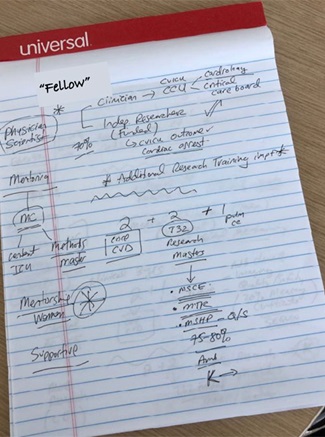 universal
"Fellow"
Physician Scientist *
Clinician → CCU → Cardiology
CVICU
Critical
care board
Indep Researcher
(Funded)
→ CVICU outcome
Cardiac arrest
70%
# Additional Research Training impt *
Mentoring
MC
ICU
Methods
master
2 + 2 + 1
CVD
T32
Research
Master
Mentorship
Women
• MSCE
• MTR
• MSHP - Q/S
75-80%
And
K →
Supportive